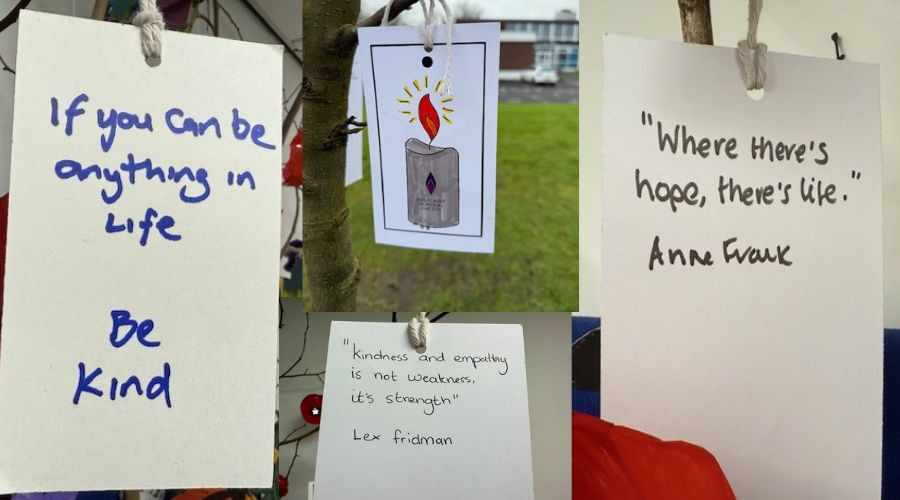 If you can be
anything in
Life
Be
Kind
HOLOCAUST
MEMORIAL
"kindness and empathy
is not weakness,
it's strength"
Lex fridman
"Where there's
hope, there's life."
Anne Frank